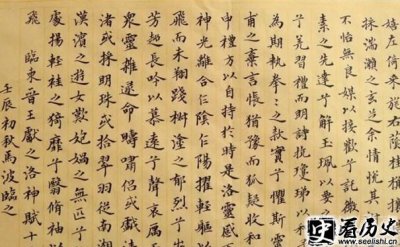 嬉左倚采旄右蔭桂旗攘
採湍瀨之玄芝余情悅其
不怡無良媒以接歡兮託微
素之先達兮解玉珮以要
兮羌習禮而明詩抗瓊珶
為期執拳拳之款實兮懼斯靈
甫之棄言悵猶豫而狐疑收和
申禮方以自持於是洛靈感
神光離合乍陰乍陽擢輕軀以
飛而未翔踐椒塗之郁烈兮步
芳超長吟以慕遠兮聲哀厲
眾靈雜遝命疇嘯侶或戲清
渚或採明珠或拾翠羽從南湘
漢濱之游女歎匏媧之無匹兮
處揚輕袿之猗靡兮翳脩袖以
飛 臨東晉王獻之洛神賦十
壬辰初秋馬波臨之
看历史
www.seelishi.cn